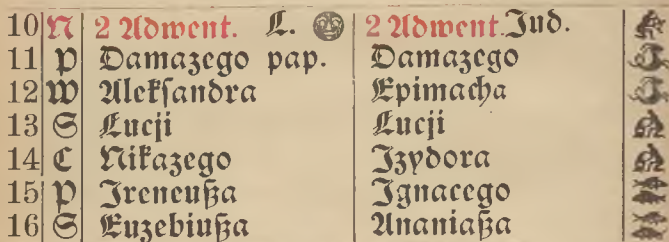 10 N 2 Adwent. L. 2 Adwent. Jud.
11 P Damazego pap. Damazego
12 W Alekſandra Epimacha
13 S Lucji Lucji
14 C Nikazego Izydora
15 P Ireneußa Ignacego
16 S Euzebiußa Ananiaßa